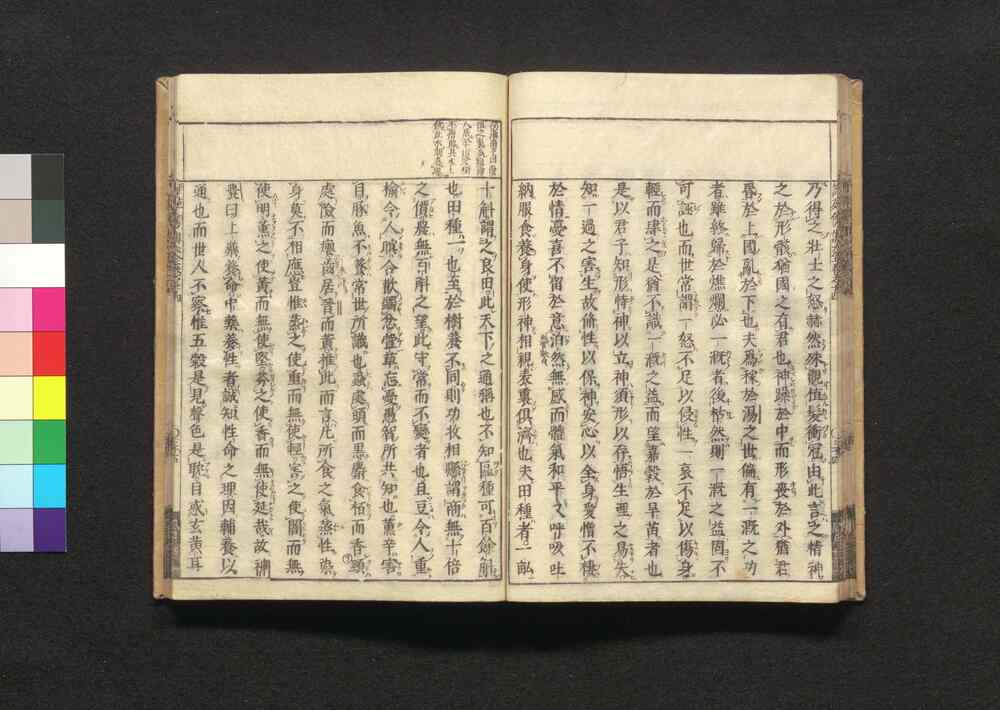 乃得之壯士之怒赫然殊觀植髮衝冠由此言之精神
之於形骸猶國之有君也神躁於中而形喪於外猶君
昏於上國亂於下也夫爲稼於湯之世偏有一漑之功
者雖終歸於燋爛必一漑者後枯然則一漑之益固不
可誣也而世常謂一怒不足以侵性一哀不足以傷身
輕而肆之是猶不識一漑之益而望嘉穀於旱苗者也
是以君子知形恃神以立神須形以存悟生理之易失
知一過之害生故脩性以保神安心以全身愛憎不棲
於情憂喜不留於意泊然無感而體氣和平又呼吸吐
納服食養身使形神相親表裏俱濟也夫田種者一畝
十斛謂之良田此天下之通稱也不知區種可百餘斛
也田種一也至於樹養不同則功收相懸謂商無十倍
之價農無百斛之望此守常而不變者也且豆令人重
榆令人瞑合歡蠲忿萱草忘憂愚智所共知也薰辛害
目豚魚不養常世所識也蝨處頭而黑麝食栢而香頸
處險而癭齒居晉而黃推此而言凡所食之氣蒸性染
身莫不相應豈惟蒸之使重而無使輕害之使闇而無
使明薰之使黃而無使堅芬之使香而無使延哉故神
農曰上藥養命中藥養性者誠知性命之理因輔養以
通也而世人不察惟五穀是見聲色是耽目惑玄黃耳